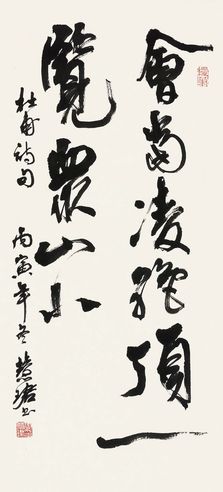 會當凌絕頂一
覽眾山小
杜甫詩句
丙寅年冬慧珺書